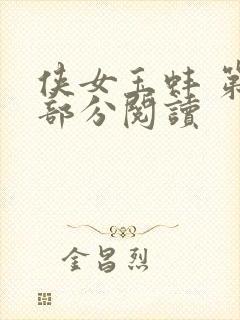 侠女玉蚌 第
部分閱讀
金昌烈